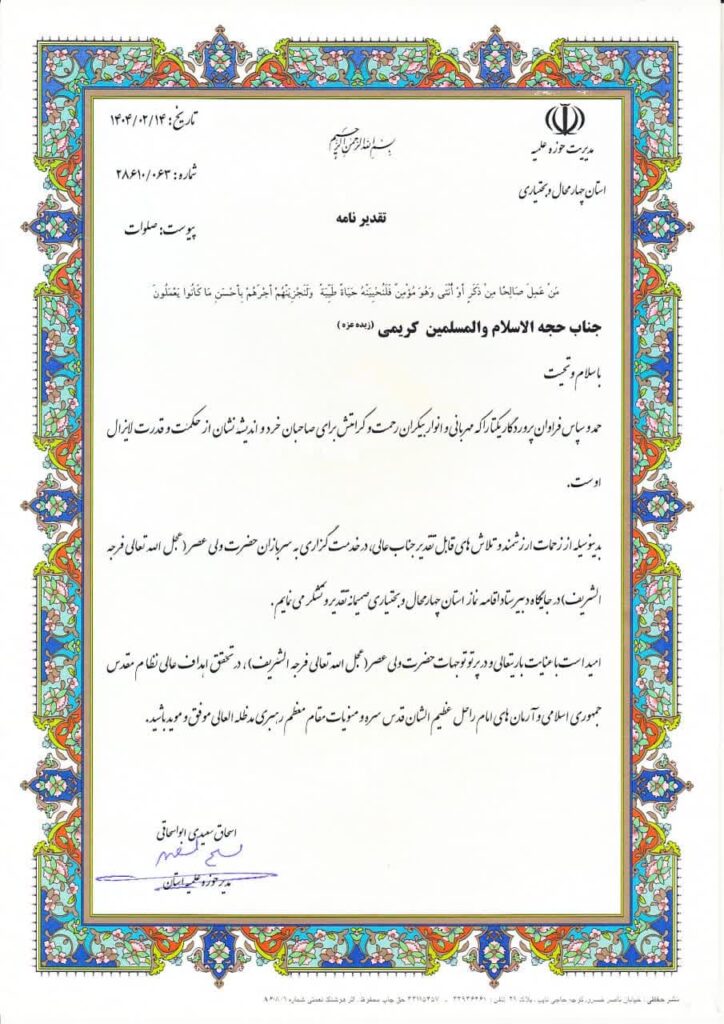 مدیریت حوزه علمیه
استان چهارمحال و بختیاری
بسم الله الرحمن الرحیم
تاریخ: ۱۴۰۴/۰۲/۱۴
شماره: ۲۸۶۱۰/۰۶۳
پیوست: صلوات
تقدیر نامه
مَنْ عَمِلَ صَالِحًا مِنْ ذَكَرٍ أَوْ أُنْثَى وَهُوَ مُؤْمِنٌ فَلَنُحْيِيَنَّهُ حَيَاةً طَيِّبَةً وَلَنَجْزِيَنَّهُمْ أَجْرَهُمْ بِأَحْسَنِ مَا كَانُوا يَعْمَلُونَ
جناب حجه الاسلام والمسلمین کریمی (زیده عزه)
با سلام و تحیت
حمد و سپاس فراوان پروردگار یکتا را که مهربانی و انوار بیکران رحمت و کرامتش برای صاحبان خرد و اندیشه نشان از حکمت و قدرت لایزال
اوست.
بدینوسیله از زحمات ارزشمند و تلاش های قابل تقدیر جناب عالی، در خدمت گزاری به سربازان حضرت ولی عصر (عجل الله تعالی فرجه
الشریف) در جایگاه دبیر ستاد اقامه نماز استان چهارمحال و بختیاری صمیمانه تقدیر و تشکر می نمایم.
امید است با عنایت باریتعالی و در پرتو توجهات حضرت ولی عصر (عجل الله تعالی فرجه الشریف)، در تحقق اهداف عالی نظام مقدس
جمهوری اسلامی و آرمان های امام راحل عظیم الشان قدس سره و منویات مقام معظم رهبری مدظله العالی موفق و موید باشید.
اسحاق سعیدی ابواسحاقی
مدیر حوزه علمیه استان
نشر حقیقی: خیابان ناصر خسرو، کوچه حاجی نایب، پلاک ۲۱ تلفن: ۳۳۹۳۶۲۶۱ - ۳۳۱۱۵۳۵۷ حق چاپ محفوظ. اثر هوشنگ نعمتی شماره ۹۶/۸/۰۱